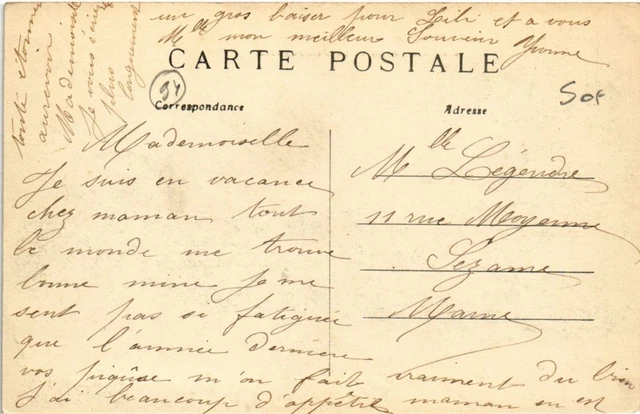 une gros baiser pour Lili et a vous
Mlle mon meilleur Souvenir Yvonne
CARTE POSTALE
Correspondance
Adresse
94
50f
Mademoiselle
Je suis en vacance
chez maman tout
le monde me trouve
bonne mine Je me
sent pas si fatiguée
que l'année dernière
vos piqûre m'on fait vraiment du bien
J'ai beaucoup d'appétit maman en est
toute étonnée
aurevoir
Mademoiselle
Je vous écrirez
plus
longuement
Mlle Légendre
11 rue Moyenne
Sézanne
Marne